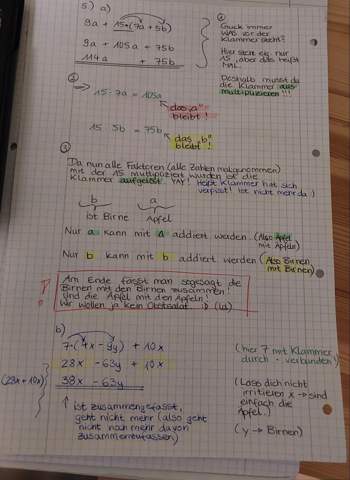 5.) a)
9a + 15·(7a + 5b)
9a + 105a + 75b
114a + 75b
①
Guck immer
WAS vor der
Klammer steht!
Hier steht eig. nur
15, aber das heißt
MAL.
Deshalb musst du
die Klammer aus-
multiplizieren!!!
②
15 · 7a = 105a
das „a"
bleibt!
15 · 5b = 75b
das „b"
bleibt!
③
Da nun alle Faktoren (alle Zahlen malgenommen)
mit der 15 multipliziert wurden ist die
Klammer aufgelöst. YAY! Heißt Klammer hat sich
verpisst! Ist nicht mehr da.)
b a
ist Birne Apfel
Nur a kann mit a addiert werden. (Also Apfel
mit Äpfeln)
Nur b kann mit b addiert werden (Also Birnen
mit Birnen)
Am Ende fasst man sozusagen die
Birnen mit den Birnen zusammen!
Und die Äpfel mit den Äpfeln!
Wir wollen ja kein Obstsalat :D
b)
7·(4x - 9y) + 10x
28x - 63y + 10x
(28x+10x)
38x - 63y
(hier 7 mit Klammer
durch · verbunden)
(Lass dich nicht
irritieren x → sind
einfach die
Äpfel.)
(y → Birnen)
↑ ist zusammengefasst,
geht nicht mehr (also geht
nicht noch mehr davon
zusammenzufassen)